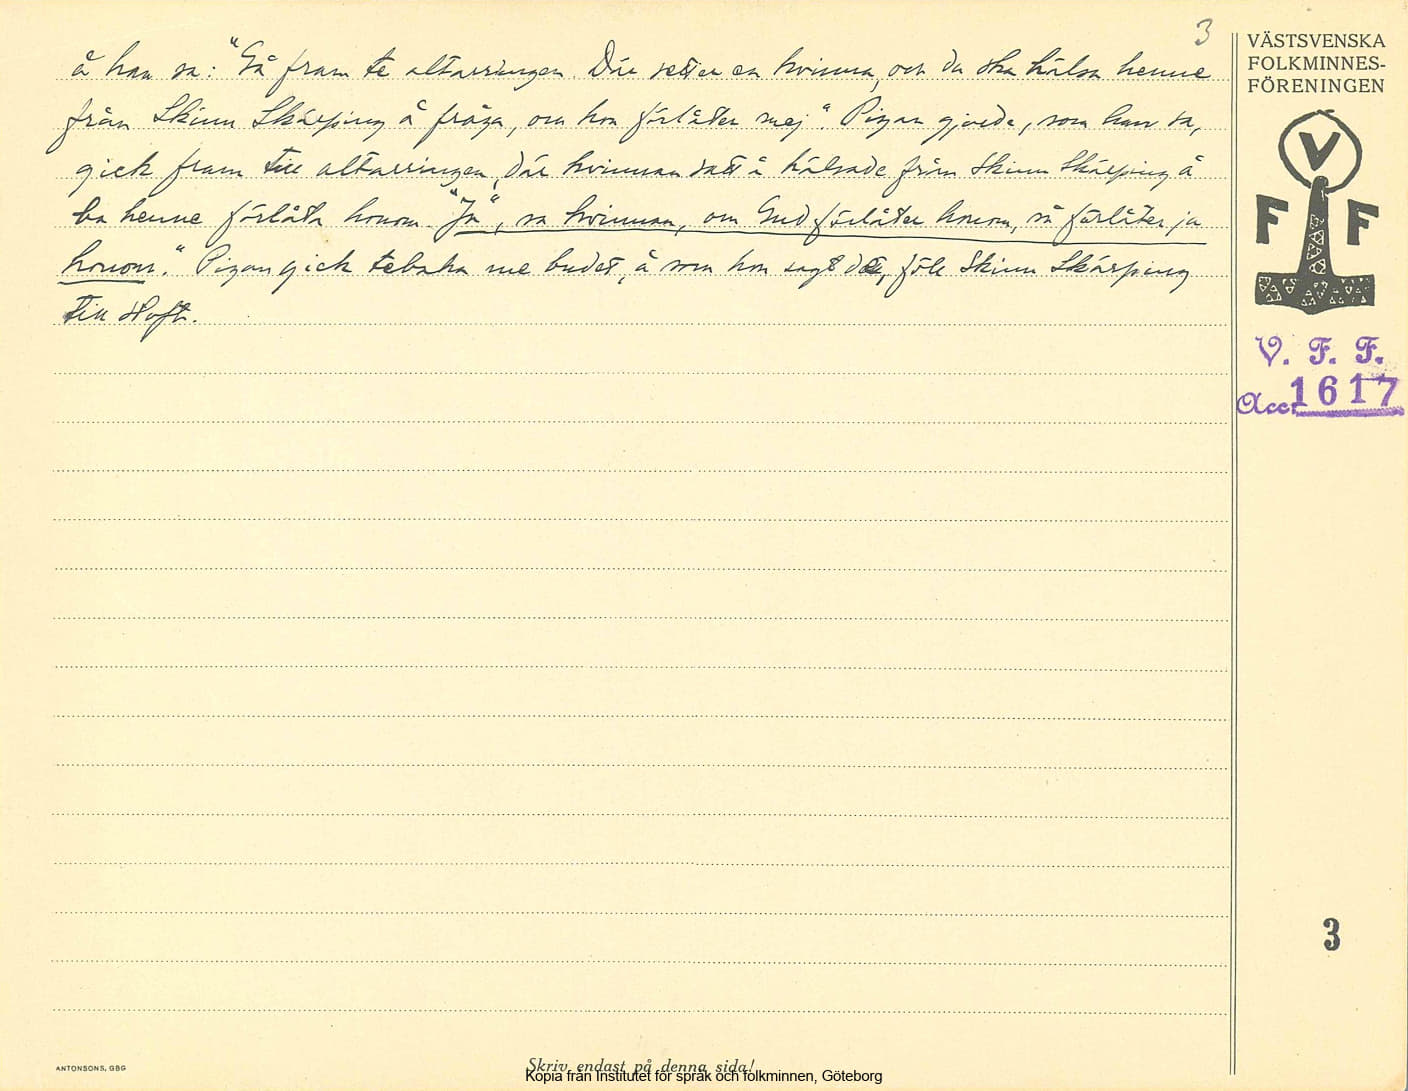 3
å han sa: "Gå fram te altarringen. Där setter en kvinna, och du ska hälsa henne
från Skinn Skärping å fråga, om hon förlåter mej". Pigan gjorde, som han sa,
gick fram till altarringen, där kvinnan satt å hälsade från Skinn Skärping å
ba henne förlåta honom. "Ja", sa kvinnan, om Gud förlåter honom, så förlåter ja
honom." Pigan gick tebaka me budet, å som hon sagt det, föll Skinn Skärping
till stoft.
VÄSTSVENSKA
FOLKMINNES-
FÖRENINGEN
V
F F
V. F. F.
Acc. 1617
3
ANTONSONS, GBG
Skriv endast på denna sida!
Kopia från Institutet för språk och folkminnen, Göteborg